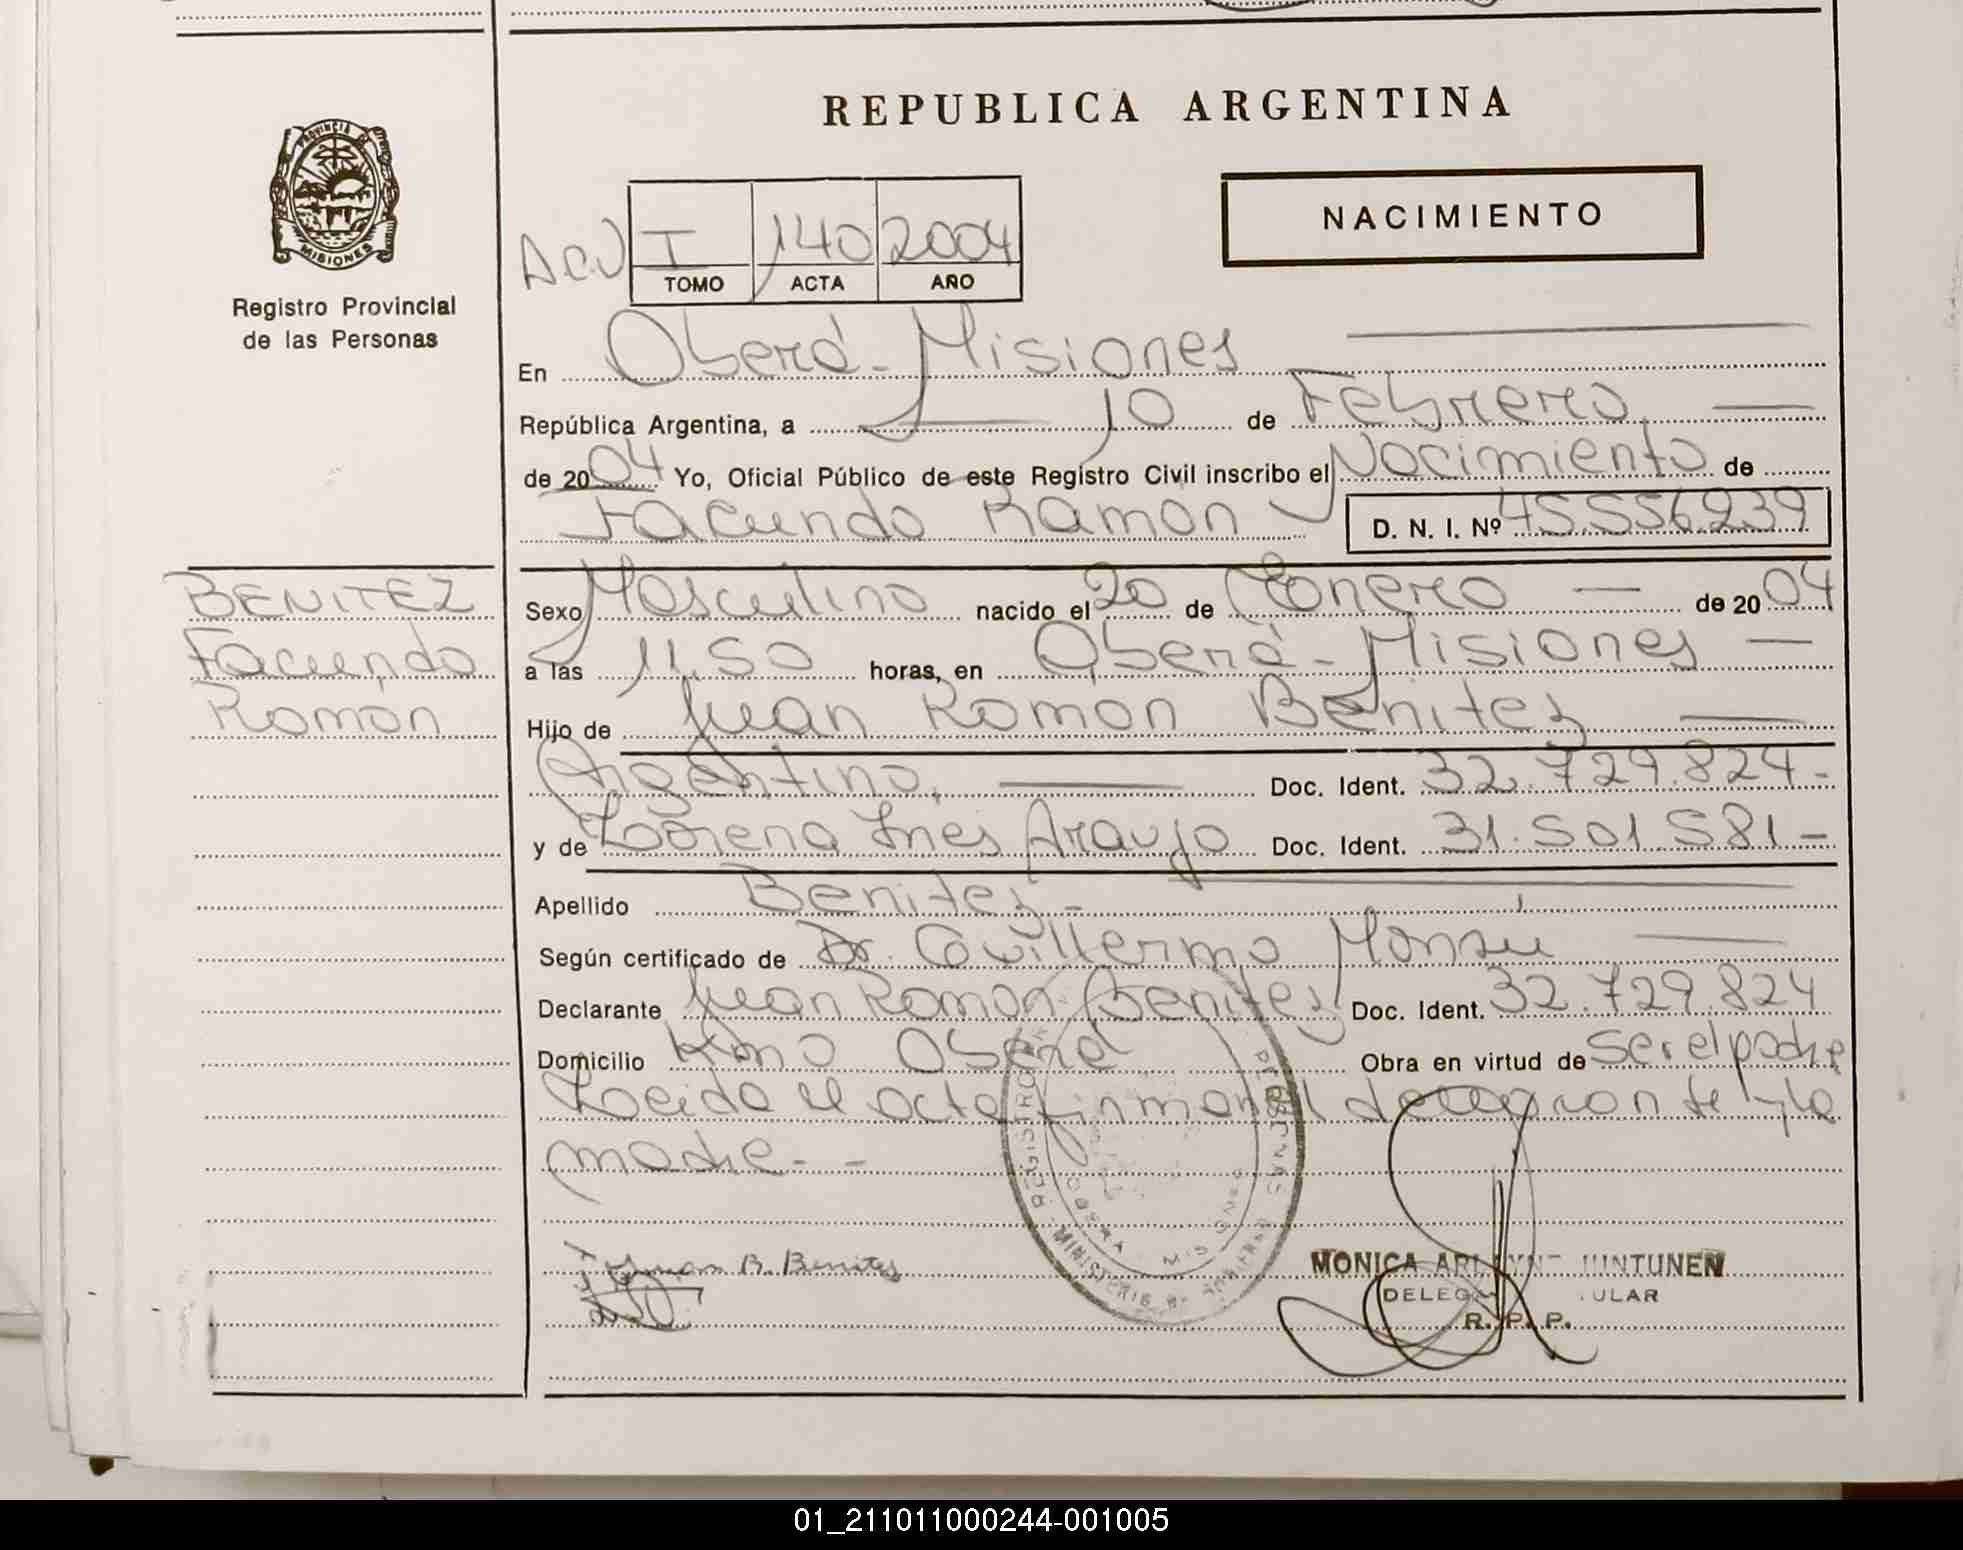 REPUBLICA ARGENTINA
PROVINCIA DE
MISIONES
Registro Provincial
de las Personas
NACIMIENTO
I 140 2004
TOMO ACTA AÑO
En Oberá - Misiones
República Argentina, a 10 de Febrero
de 2004 Yo, Oficial Público de este Registro Civil inscribo el Nacimiento de
Facundo Ramon D. N. I. Nº 45.556.239
BENITEZ
Facundo
Ramon
Sexo Masculino nacido el 20 de Enero de 2004
a las 11.50 horas, en Oberá - Misiones
Hijo de Juan Ramon Benitez
Argentino, Doc. Ident. 32.729.824-
y de Lorena Ines Araujo Doc. Ident. 31.501.581-
Apellido Benitez -
Según certificado de Dr. Guillermo Monsu
Declarante Juan Ramon Benitez Doc. Ident. 32.729.824
Domicilio Oberá Obra en virtud de ser el padre
Leida el acta firman el declarante y la
madre - -
REGISTRO PERSONAS
OBERA MISIONES
Juan R. Benitez
MONICA JUNTUNEN
R. P. P.
01_211011000244-001005